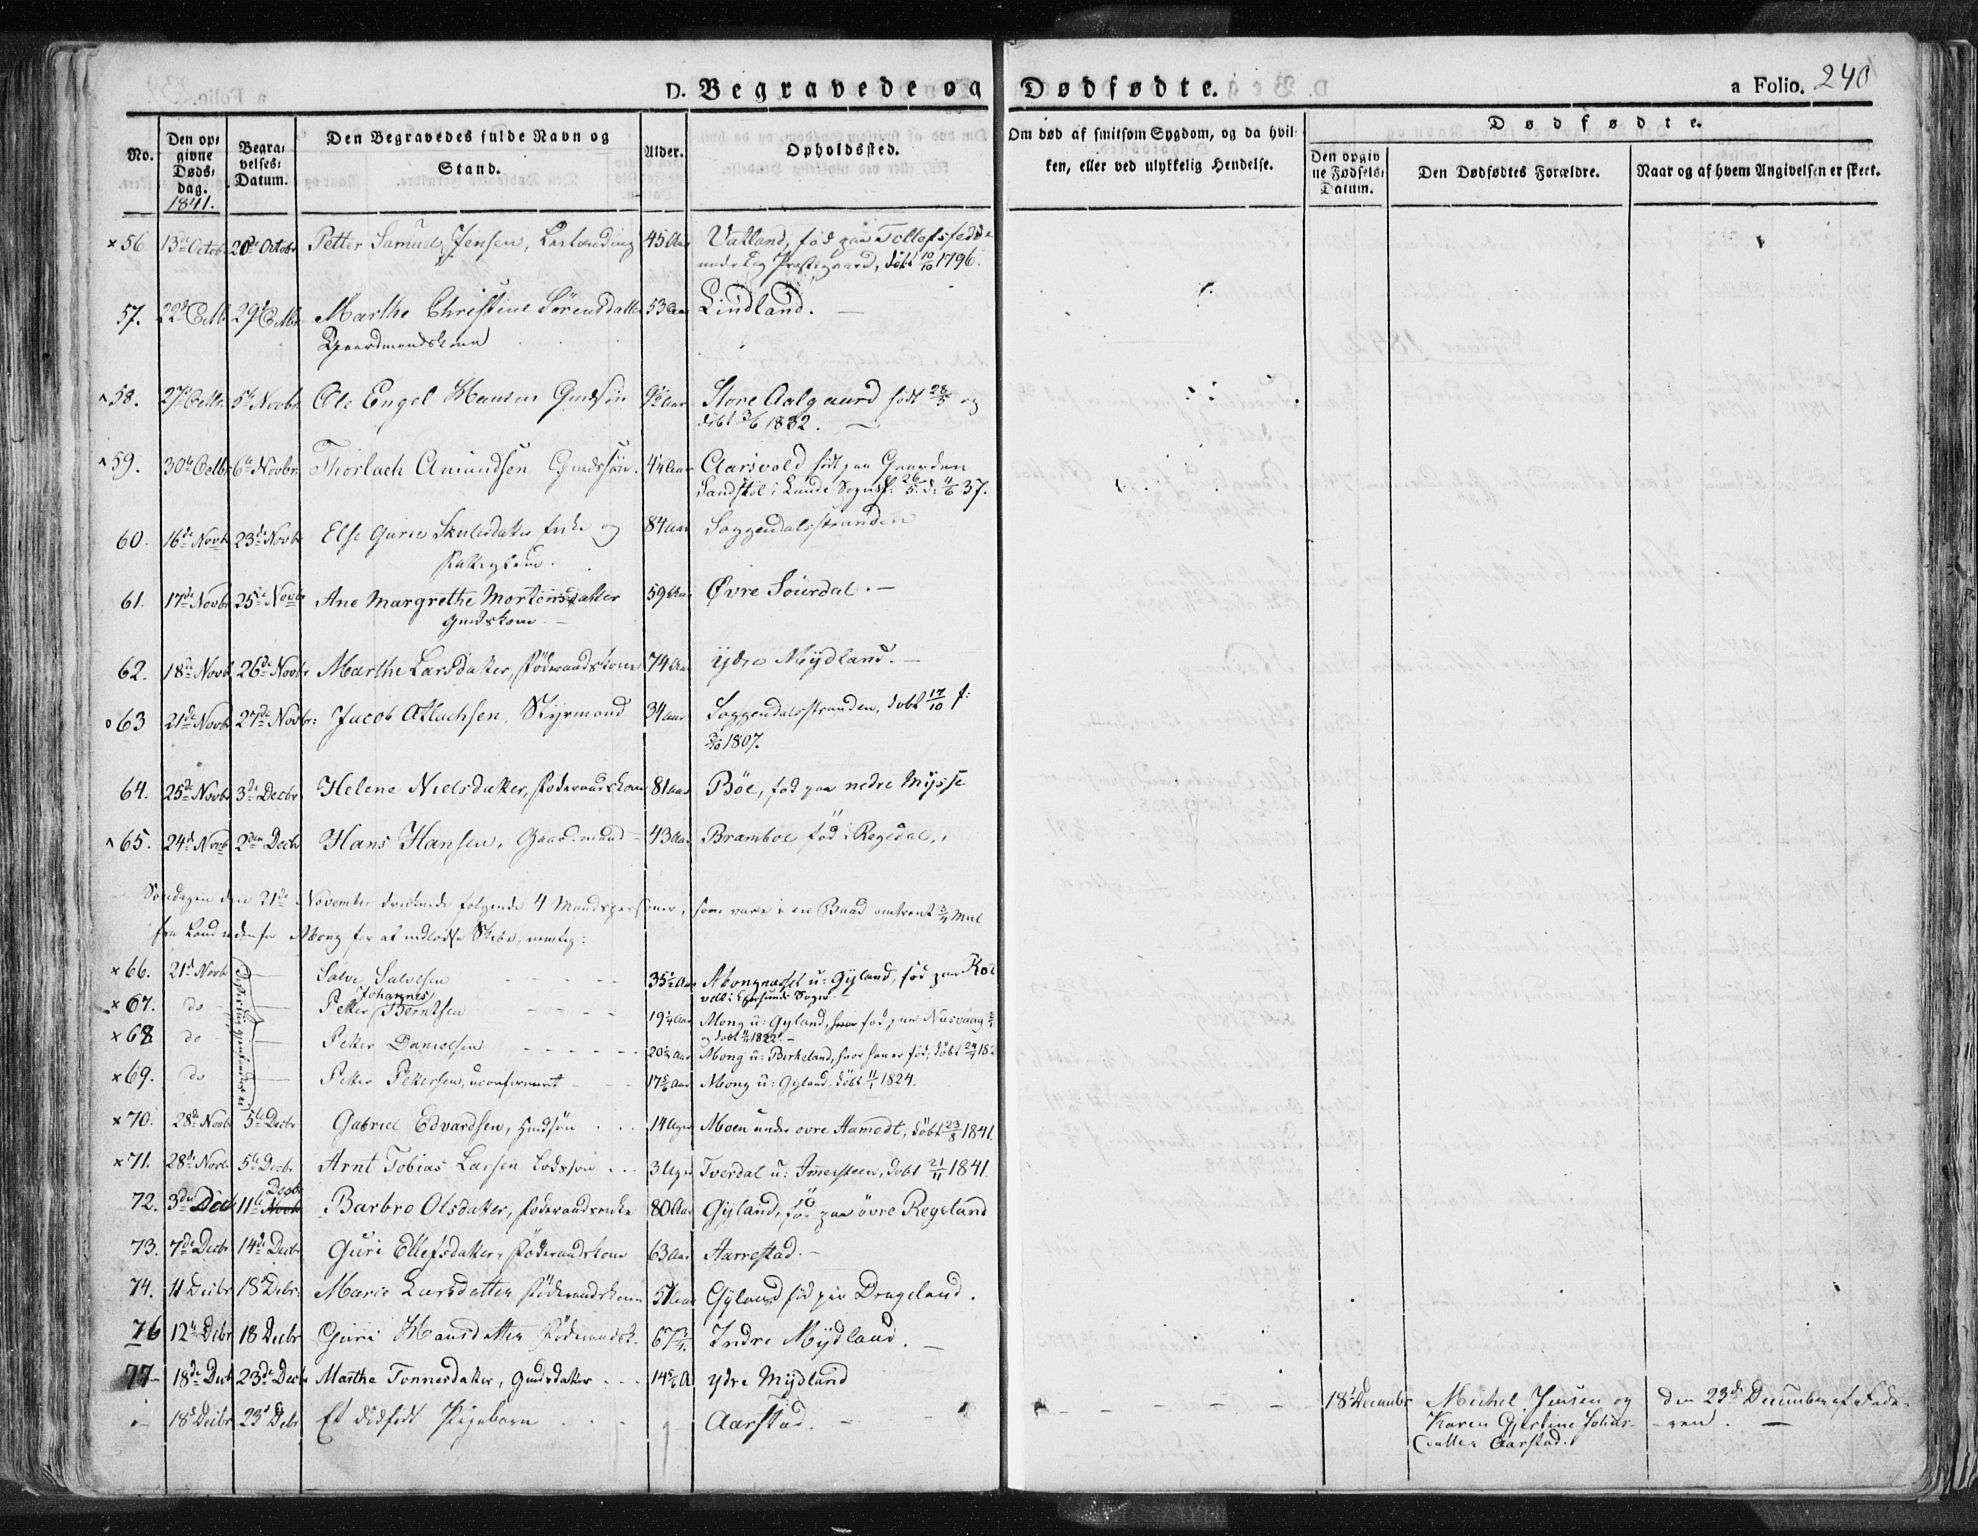 D. Begravede og Dødfødte. a Folio. 240
No. Den opgivne Dødsdag. 1841. Begravelses Datum. Den Begravedes fulde Navn og Stand. Alder. Opholdssted. Om død af smitsom Sygdom, og da hvilken, eller ved ulykkelig Hendelse. Dødfødte. Den opgivne Fødsels Datum. Den Dødfødtes Forældre. Naar og af hvem Angivelsen er skeet.
× 56 13de Octob 20de Octobr Petter Samuel Jensen, 45 Aar Vatland, fød paa Tollefsfedde
Prestegaard, døbt 10/10 1796.
57. 22d Octb 29d Octbr Marthe Christine Sørensdatter 53 Aar Lindland. —
Gaardmandskone
58. 27d Octbr 5te Novbr Ole Engel Hansen Gmdsøn 9½ Aar Store Aalgaard født 28/5 og
døbt 3/6 1832. —
59. 30te Octbr 6te Novbr Thorlach Amundsen Gmdssøn. 4¼ Aar Aarsvold født paa Gaarden
Sandstøl i Lunde Sogn f: 26/5 d: 4/6 37.
60. 16de Novbr 23de Novbr Else Gurie Skulesdatter Enke og 84 Aar Soggendalsstranden
61. 17de Novbr 25de Novbr Ane Margrethe Mortensdatter 59 Aar Øvre Sourdal. —
Gmdskone —
62. 18de Novb 26de Novbr Marthe Larsdatter, Føderaadskone 74 Aar ydre Mydland. —
o 63 21de Novbr 27de Novbr: Jacob Atlachsen, Styrmand 34 Aar Soggendalsstranden, døbt 17/10 f:
3/10 1807.
64. 25de Novbr 3de Decbr Helene Nielsdatter, Føderaadskone 81 Aar Böe, fød paa nedre Mysse
65. 24d Novb 2den Decb Hans Hansen, Gaardmand 43 Aar Bramboe fød i Regedal.
Søndagen den 21de November druknede følgende 4 Mandspersoner, som vare i en Baad omtrent ¾ Miil
fra Land udenfor Mong for at indlodse Skibe, nemlig:
× 66. 21d Novb Salve Salvesen 35½ Aar Mongnæsset u: Gyland, fød paa Rod
vell i Egersunds Sogn
× 67. do Petter Johannes Berntsen 19¼ Aar Mong u: Gyland, fød paa Nasvaag
og døbt 1822. —
× 68 do Petter Danielsen 20½ Aar Mong u: Birkeland, hvor han er fød; døbt 24/ 182
× 69. do Petter Pettersen, uconfirmeret 17 5/6 Aar Mong u: Gyland, døbt 11/1 1824.
× 70. 28de Novb 5te Decbr Gabriel Edvardsen, Gmdsøn 14 Uger Moen under øvre Aamodt, døbt 23/8 1841.
× 71. 28de Novb. 5te Decbr Arnt Tobias Larsen Lodssøn 3 Uger Tverdal u: Immersteen, døbt 21/11 1841.
72. 3den Decb 11te Novb Decbr Barbro Olsdatter, Føderaadsenke 80 Aar Gyland, fød paa øvre Regeland
73. 7de Decbr 14de Decbr Guri Ellefsdatter, Føderaadskone 63 Aar Aarrestad. —
74. 11 Decbr 18 Debr: Marie Larsdatter Føderaadskone 51 Aar Gyland fød paa Drageland.
76 12te Debr 18 Decbr Guri Hansdatter Føderaadsk. 67¾ Indre Mydland. —
77 — 18de Decb 23de Decb Marthe Tonnesdatter, Gmdsdatter 14 5/6 A ydre Mydland
18d Decbr 23d Debr Et dødfødt Pigebarn Aarstad. — 18d December Michel Jensen og den 23de December af Fade-
Karen Gjertine Tobias- -ren. —
datter Aarstad.